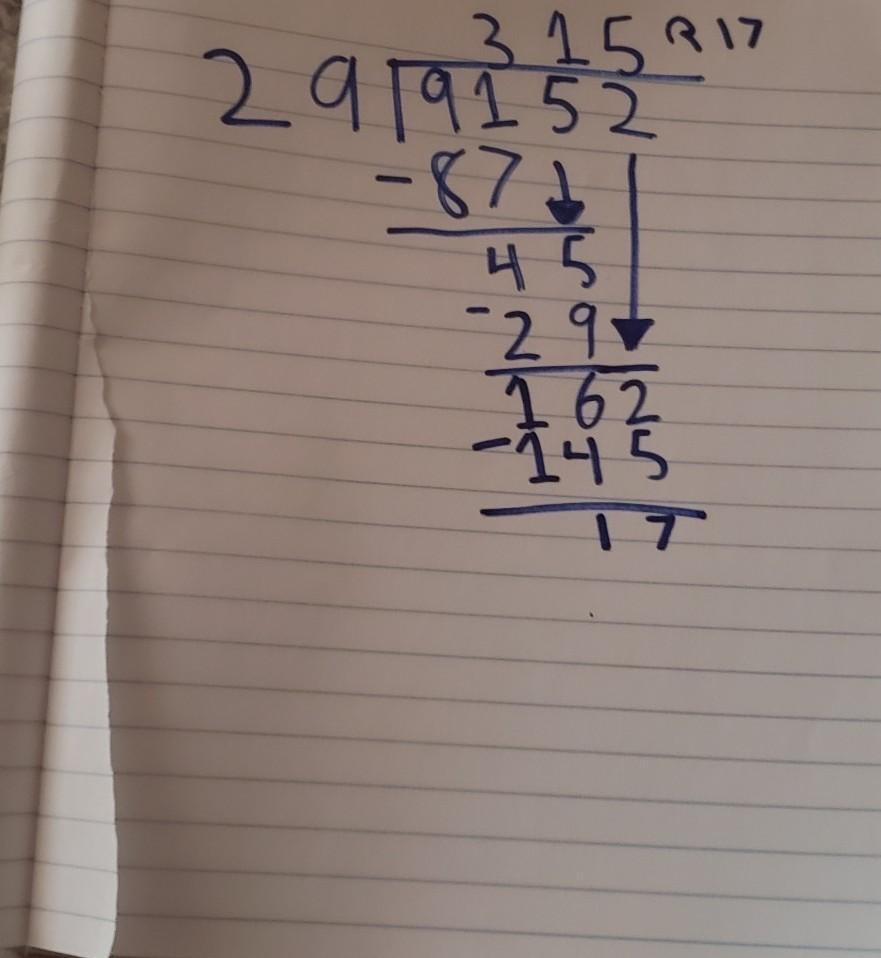 315 R17
29 9152
-87
45
-29
162
-145
17